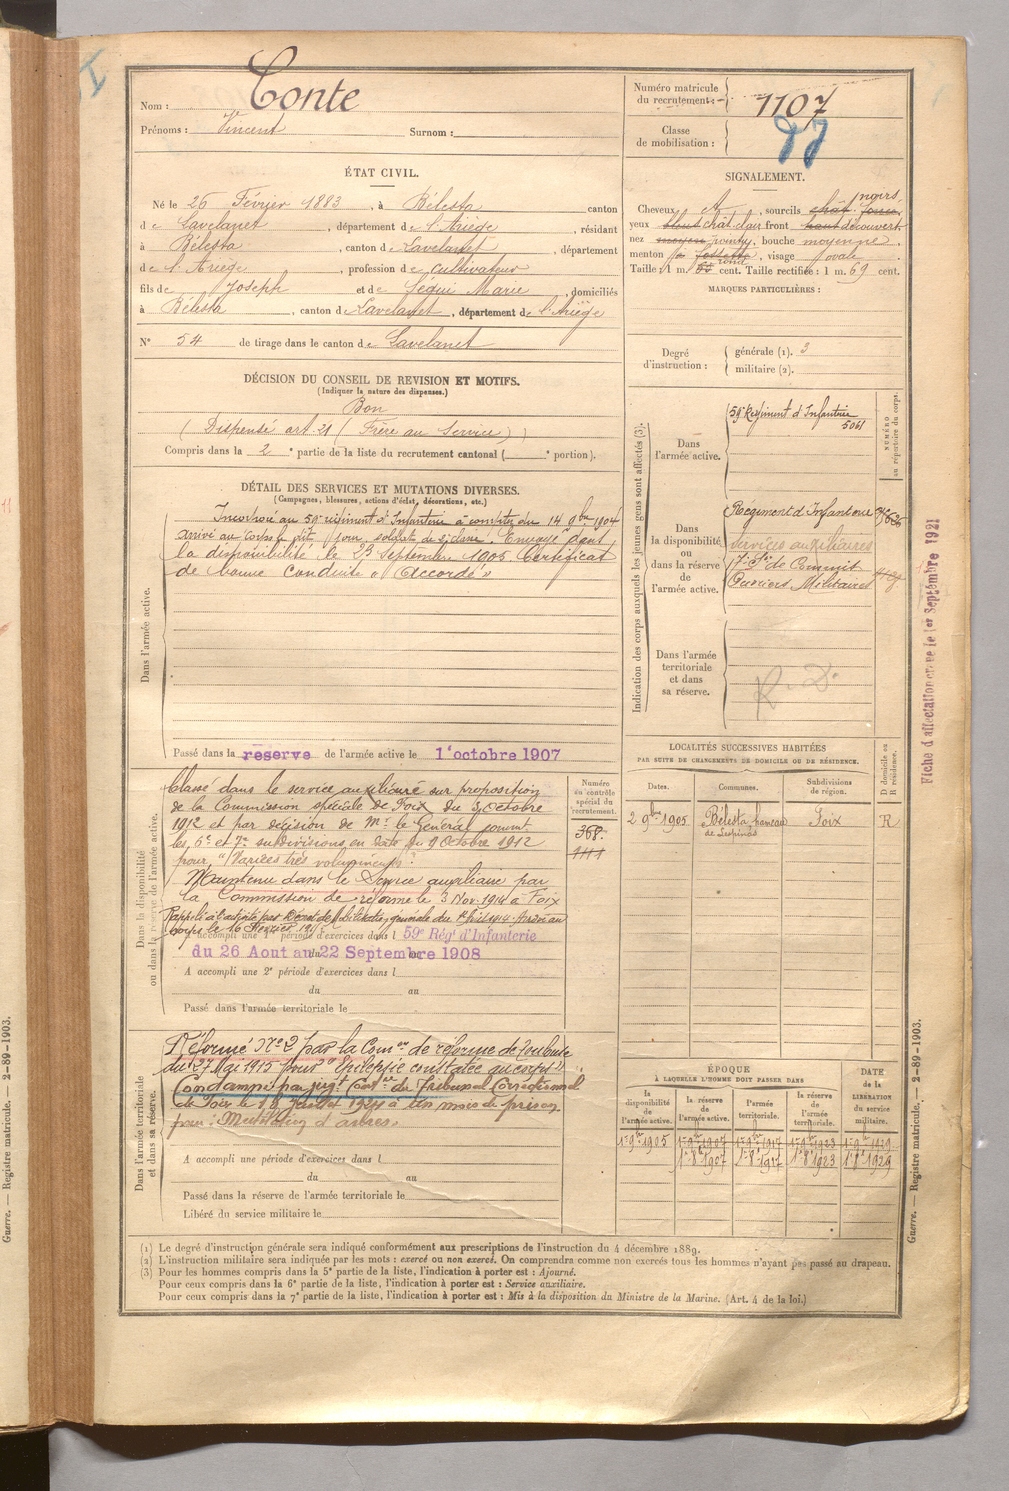 Nom : Conte
Prénoms : Vincent Surnom :
Numéro matricule
du recrutement : 1107
Classe
de mobilisation :
ÉTAT CIVIL.
Né le 26 Février 1883, à Bélesta canton
de Lavelanet, département de l'Ariège, résidant
à Bélesta, canton de Lavelanet, département
de l'Ariège, profession de cultivateur
fils de Joseph et de Ségui Marie, domiciliés
à Bélesta, canton de Lavelanet, département de l'Ariège
N° 54 de tirage dans le canton de Lavelanet
SIGNALEMENT.
noirs
Cheveux, sourcils chât. foncé
yeux bleus chât. clair front haut découvert
nez moyen pointu, bouche moyenne,
menton à fossette rond, visage ovale.
Taille : 1 m. cent. Taille rectifiée : 1 m. 69 cent.
MARQUES PARTICULIÈRES :
Degré
d'instruction :
générale (1). 3
militaire (2).
DÉCISION DU CONSEIL DE REVISION ET MOTIFS.
(Indiquer la nature des dispenses.)
Bon
(Dispensé art. 21 (Frère au Service))
Compris dans la 2e partie de la liste du recrutement cantonal ( e portion).
DÉTAIL DES SERVICES ET MUTATIONS DIVERSES.
(Campagnes, blessures, actions d'éclat, décorations, etc.)
Dans l'armée active.
au 59e régiment d'Infanterie à compter du 14 9bre 1904
Arrivé au corps le dit jour, soldat de 2e classe. Envoyé dans
la disponibilité le 23 Septembre 1905. Certificat
de bonne conduite « Accordé »
Passé dans la réserve de l'armée active le 1er octobre 1907
Indication des corps auxquels les jeunes gens sont affectés (3).
Dans
l'armée active.
59e Régiment d'Infanterie
5061
NUMÉRO
au répertoire du corps.
Dans
la disponibilité
ou
dans la réserve
de
l'armée active.
Régiment d'Infanterie
Services auxiliaires
7e Son de Commis
Ouvriers Militaires
Dans l'armée
territoriale
et dans
sa réserve.
R. D.
Fiche d'affectation créée le 1er Septembre 1921
Dans la disponibilité
ou dans la réserve de l'armée active.
Numéro
au contrôle
spécial du
recrutement.
368.
1111
Classé dans le service auxiliaire sur proposition
de la Commission spéciale de Foix du 3 octobre
1912 et par décision de Mr le Général command.
les 5e et 7e subdivisions en date du 9 Octobre 1912
pour "Varices très volumineuses".
Maintenu dans le Service auxiliaire par
la Commission de réforme le 3 Nov. 1914 à Foix
Rappelé à l'activité par Décret de Mobilisation générale du 1er Août 1914. Arrivé au
corps le 16 Février 1915
A accompli une 1re période d'exercices dans l 59e Régt d'Infanterie
du 26 Aout au 22 Septembre 1908
A accompli une 2e période d'exercices dans l
du au
Passé dans l'armée territoriale le
Dans l'armée territoriale
et dans sa réserve.
Réformé N° 2 par la Comon de réforme de Toulouse
du 27 Mai 1915 pour "Epilepsie constatée au corps"
Condamné par jugt contre du Tribunal Correctionnel
de Foix le 18 Juillet 1921 à un mois de prison
pour : Mutilation d'arbres.
A accompli une période d'exercices dans l
du au
Passé dans la réserve de l'armée territoriale le
Libéré du service militaire le
LOCALITÉS SUCCESSIVES HABITÉES
PAR SUITE DE CHANGEMENTS DE DOMICILE OU DE RÉSIDENCE.
D domicile ou
R résidence.
Dates. Communes. Subdivisions
de région.
2 9bre 1905 Bélesta, hameau Foix R
de Lespinas
ÉPOQUE
À LAQUELLE L'HOMME DOIT PASSER DANS
DATE
de la
LIBÉRATION
du service
militaire.
la disponibilité de l'armée active.
la réserve de l'armée active.
l'armée territoriale.
la réserve de l'armée territoriale.
1er 9bre 1905 1er 9bre 1907 1er 9bre 1917 1er 9bre 1923 1er 9bre 1929
1er 8bre 1907 1er 8bre 1917 1er 8bre 1923 1er 8bre 1929
(1) Le degré d'instruction générale sera indiqué conformément aux prescriptions de l'instruction du 4 décembre 1889.
(2) L'instruction militaire sera indiquée par les mots : exercé ou non exercé. On comprendra comme non exercés tous les hommes n'ayant pas passé au drapeau.
(3) Pour les hommes compris dans la 5e partie de la liste, l'indication à porter est : Ajourné.
Pour ceux compris dans la 6e partie de la liste, l'indication à porter est : Service auxiliaire.
Pour ceux compris dans la 7e partie de la liste, l'indication à porter est : Mis à la disposition du Ministre de la Marine. (Art. 4 de la loi.)
Guerre. — Registre matricule. — 2-89-1903.
Guerre. — Registre matricule. — 2-89-1903.